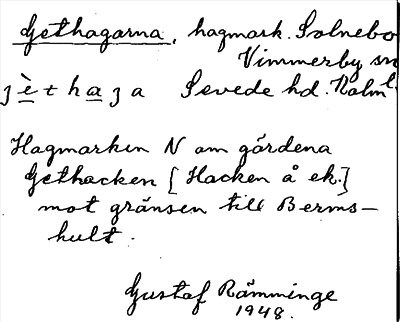 Gethagarna, hagmark. Solnebo
Vimmerby sn
ȷ è t h a ȷ a Sevede hd. Kalm l.
Hagmarken N om gärdena
Gethacken [Hacken å ek.]
mot gränsen till Berms-
hult.
Gustaf Rämminge
1948.